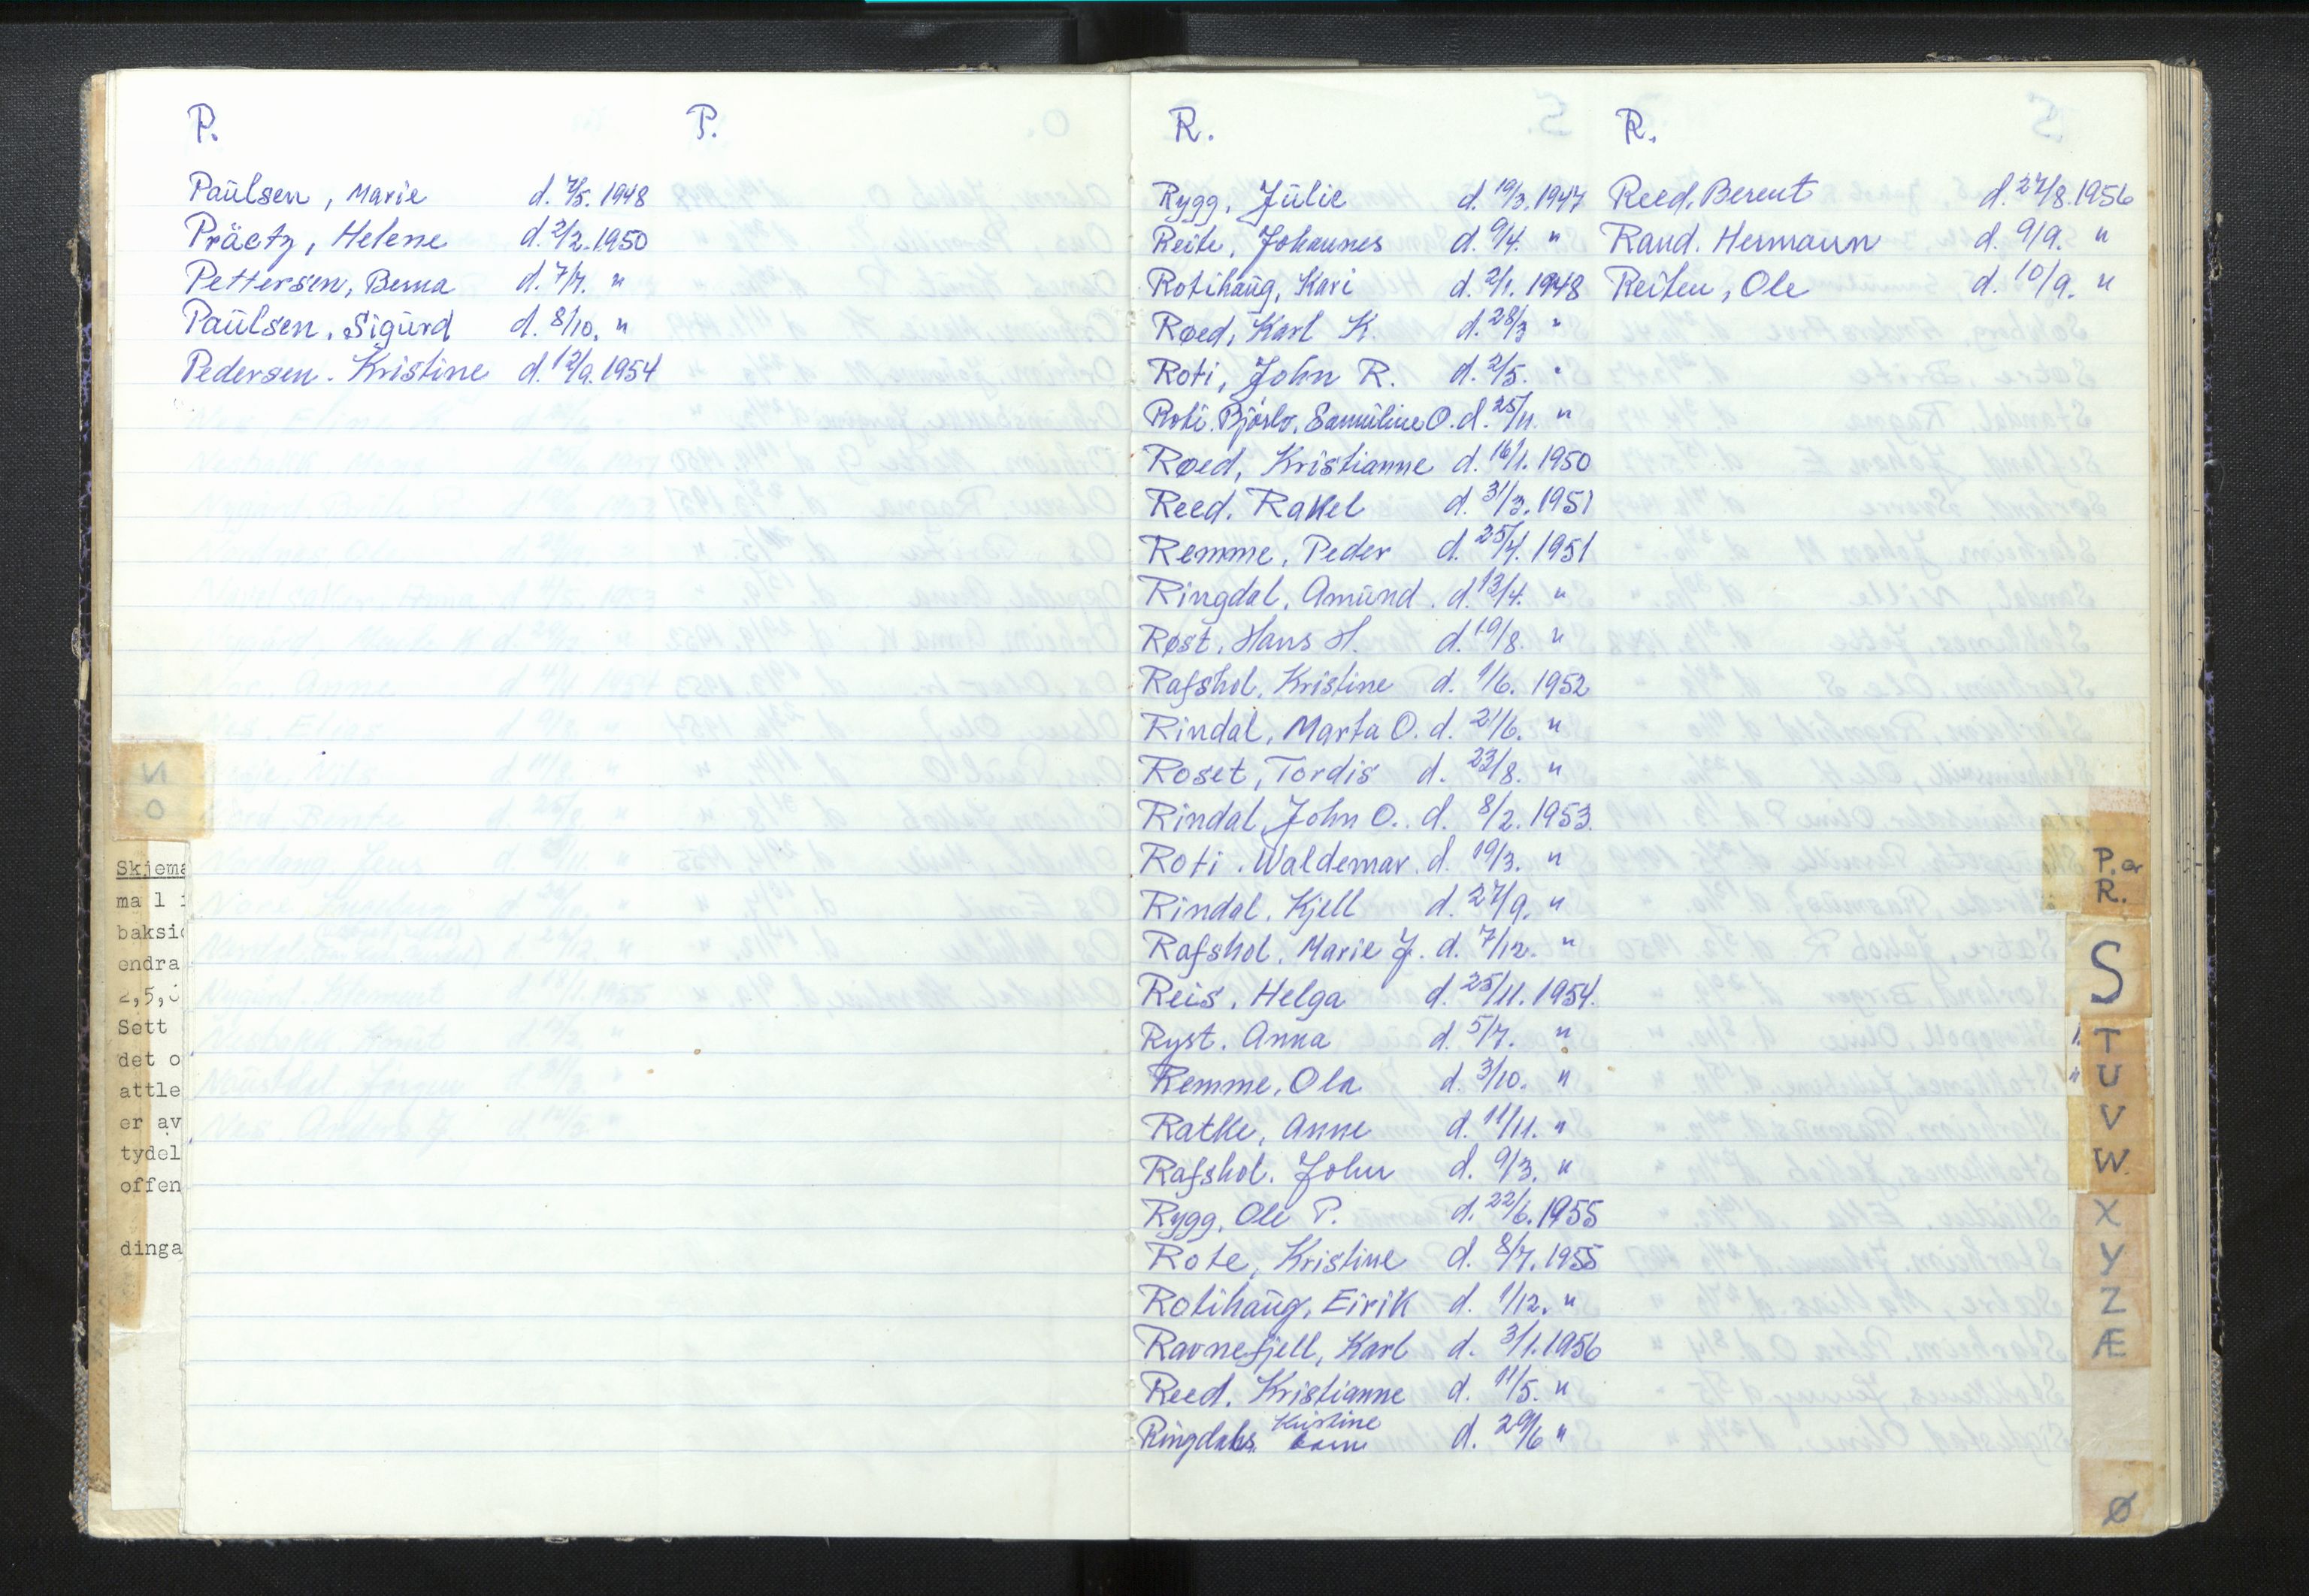 P.
Paülsen, Marie d. 7/5. 1948
Präetz, Helene d. 2/2. 1950
Pettersen, Berna d. 7/7. "
Paülsen, Sigürd d. 8/10. "
Pedersen. Kristine d. 12/9. 1954
P.
Skjema
ma l
baksid
endra
Sett
det o
attle
er av
tydel
offen
dinga
N
O
R.
Rygg, Jülie d. 19/3. 1947
Reite, Johannes d. 9/4. "
Rotihaüg, Kari d. 2/1. 1948
Røed, Karl K. d. 28/3 "
Roti, John R. d. 2/5. "
Roti. Samüline O. d. 25/11. "
Røed, Kristianne d. 16/1. 1950
Reed. Rakel d. 31/3. 1951
Remme, Peder d. 25/4. 1951
Ringdal, Amünd. d. 13/4. "
Røst, Hans H. d. 19/8. "
Rafshol, Kristine d. 1/6. 1952
Rindal, Marta O. d. 21/6. "
Roset, Tordis d. 23/8. "
Rindal, John O. d. 8/2. 1953.
Roti. Waldemar. d. 19/3. "
Rindal, Kjell d. 27/9. "
Rafshol, Marie J. d. 7/12. "
Reis, Helga d. 25/11. 1954.
Ryst. Anna d. 5/7. "
Remme, Ola d. 3/10. "
Ratke, Anne d. 11/11. "
Rafshol. John d. 9/3. "
Rygg, Ole P. d. 22/6. 1955
Rote, Kristine d. 8/7. 1955
Rotihaüg, Eirik d. 1/12. "
Ravnefjell, Karl d. 3/1. 1956
Reed. Kristianne d. 11/5. "
Ringdals, Kristine barn d. 29/6 "
R.
Reed, Berent d. 27/8. 1956
Rand. Hermann d. 9/9. "
Reiten, Ole d. 10/9. "
P. or
R.
S
T
U
V
W.
X
Y
Z
Æ
Ø